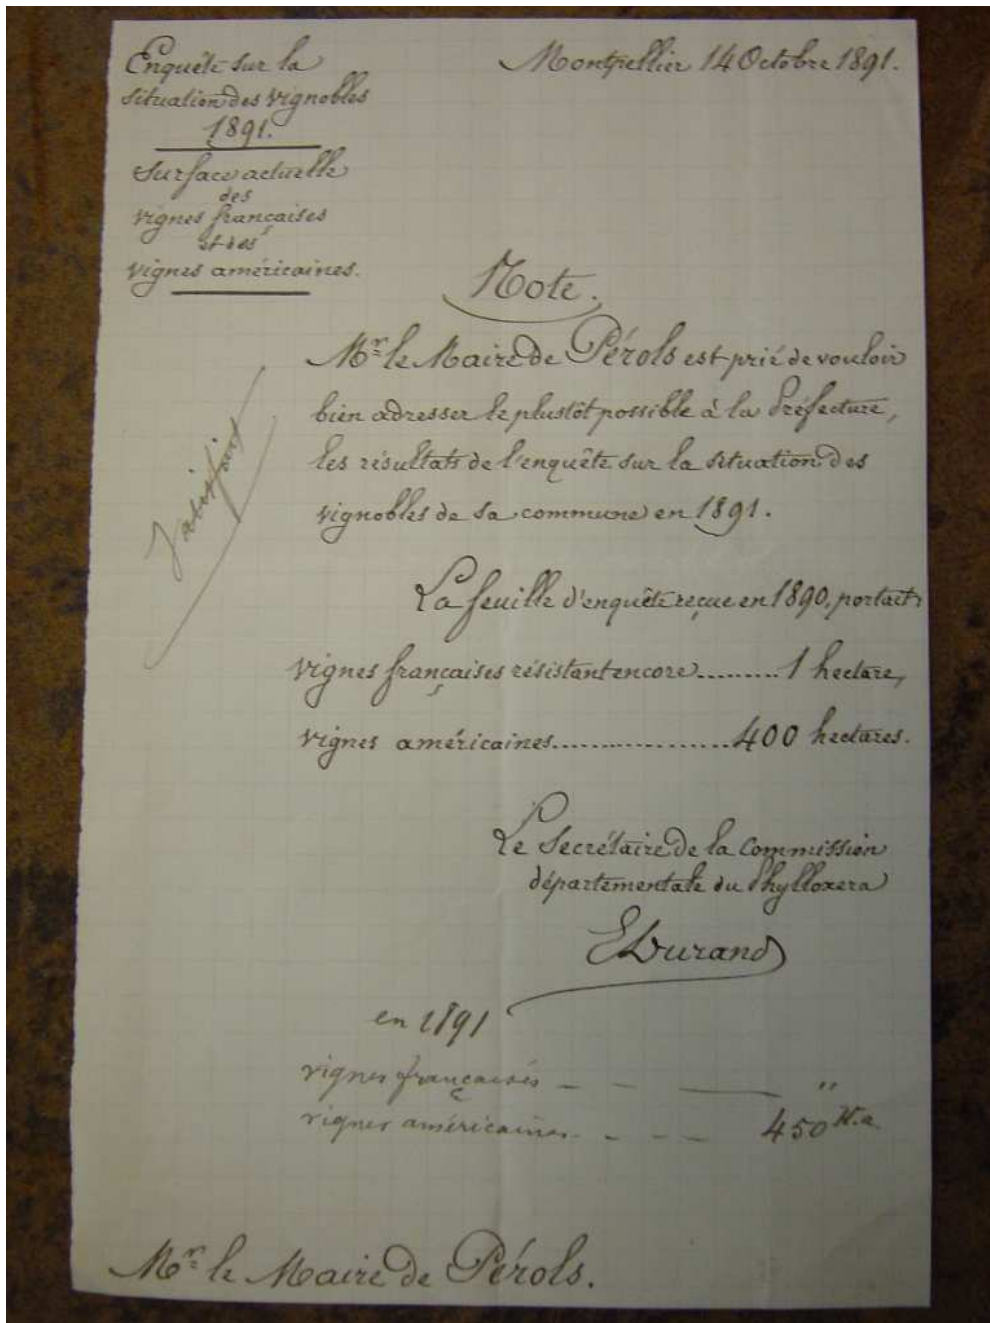 Enquête sur la
situation des vignobles
1891.
Surface actuelle
des
vignes françaises
et des
vignes américaines.
Montpellier 14 Octobre 1891.
Note.
Mr le Maire de Pérols est prié de vouloir
bien adresser le plustôt possible à la Préfecture,
les résultats de l'enquête sur la situation des
vignobles de sa commune en 1891.
Satisfait
La feuille d'enquête reçue en 1890, portait:
vignes françaises résistant encore......... 1 hectare,
vignes américaines.................. 400 hectares.
Le Secrétaire de la Commission
départementale du Phylloxera
E Durand
en 1891
vignes françaises — — — "
vignes américaines - - — — 450 H.a.
Mr le Maire de Pérols.